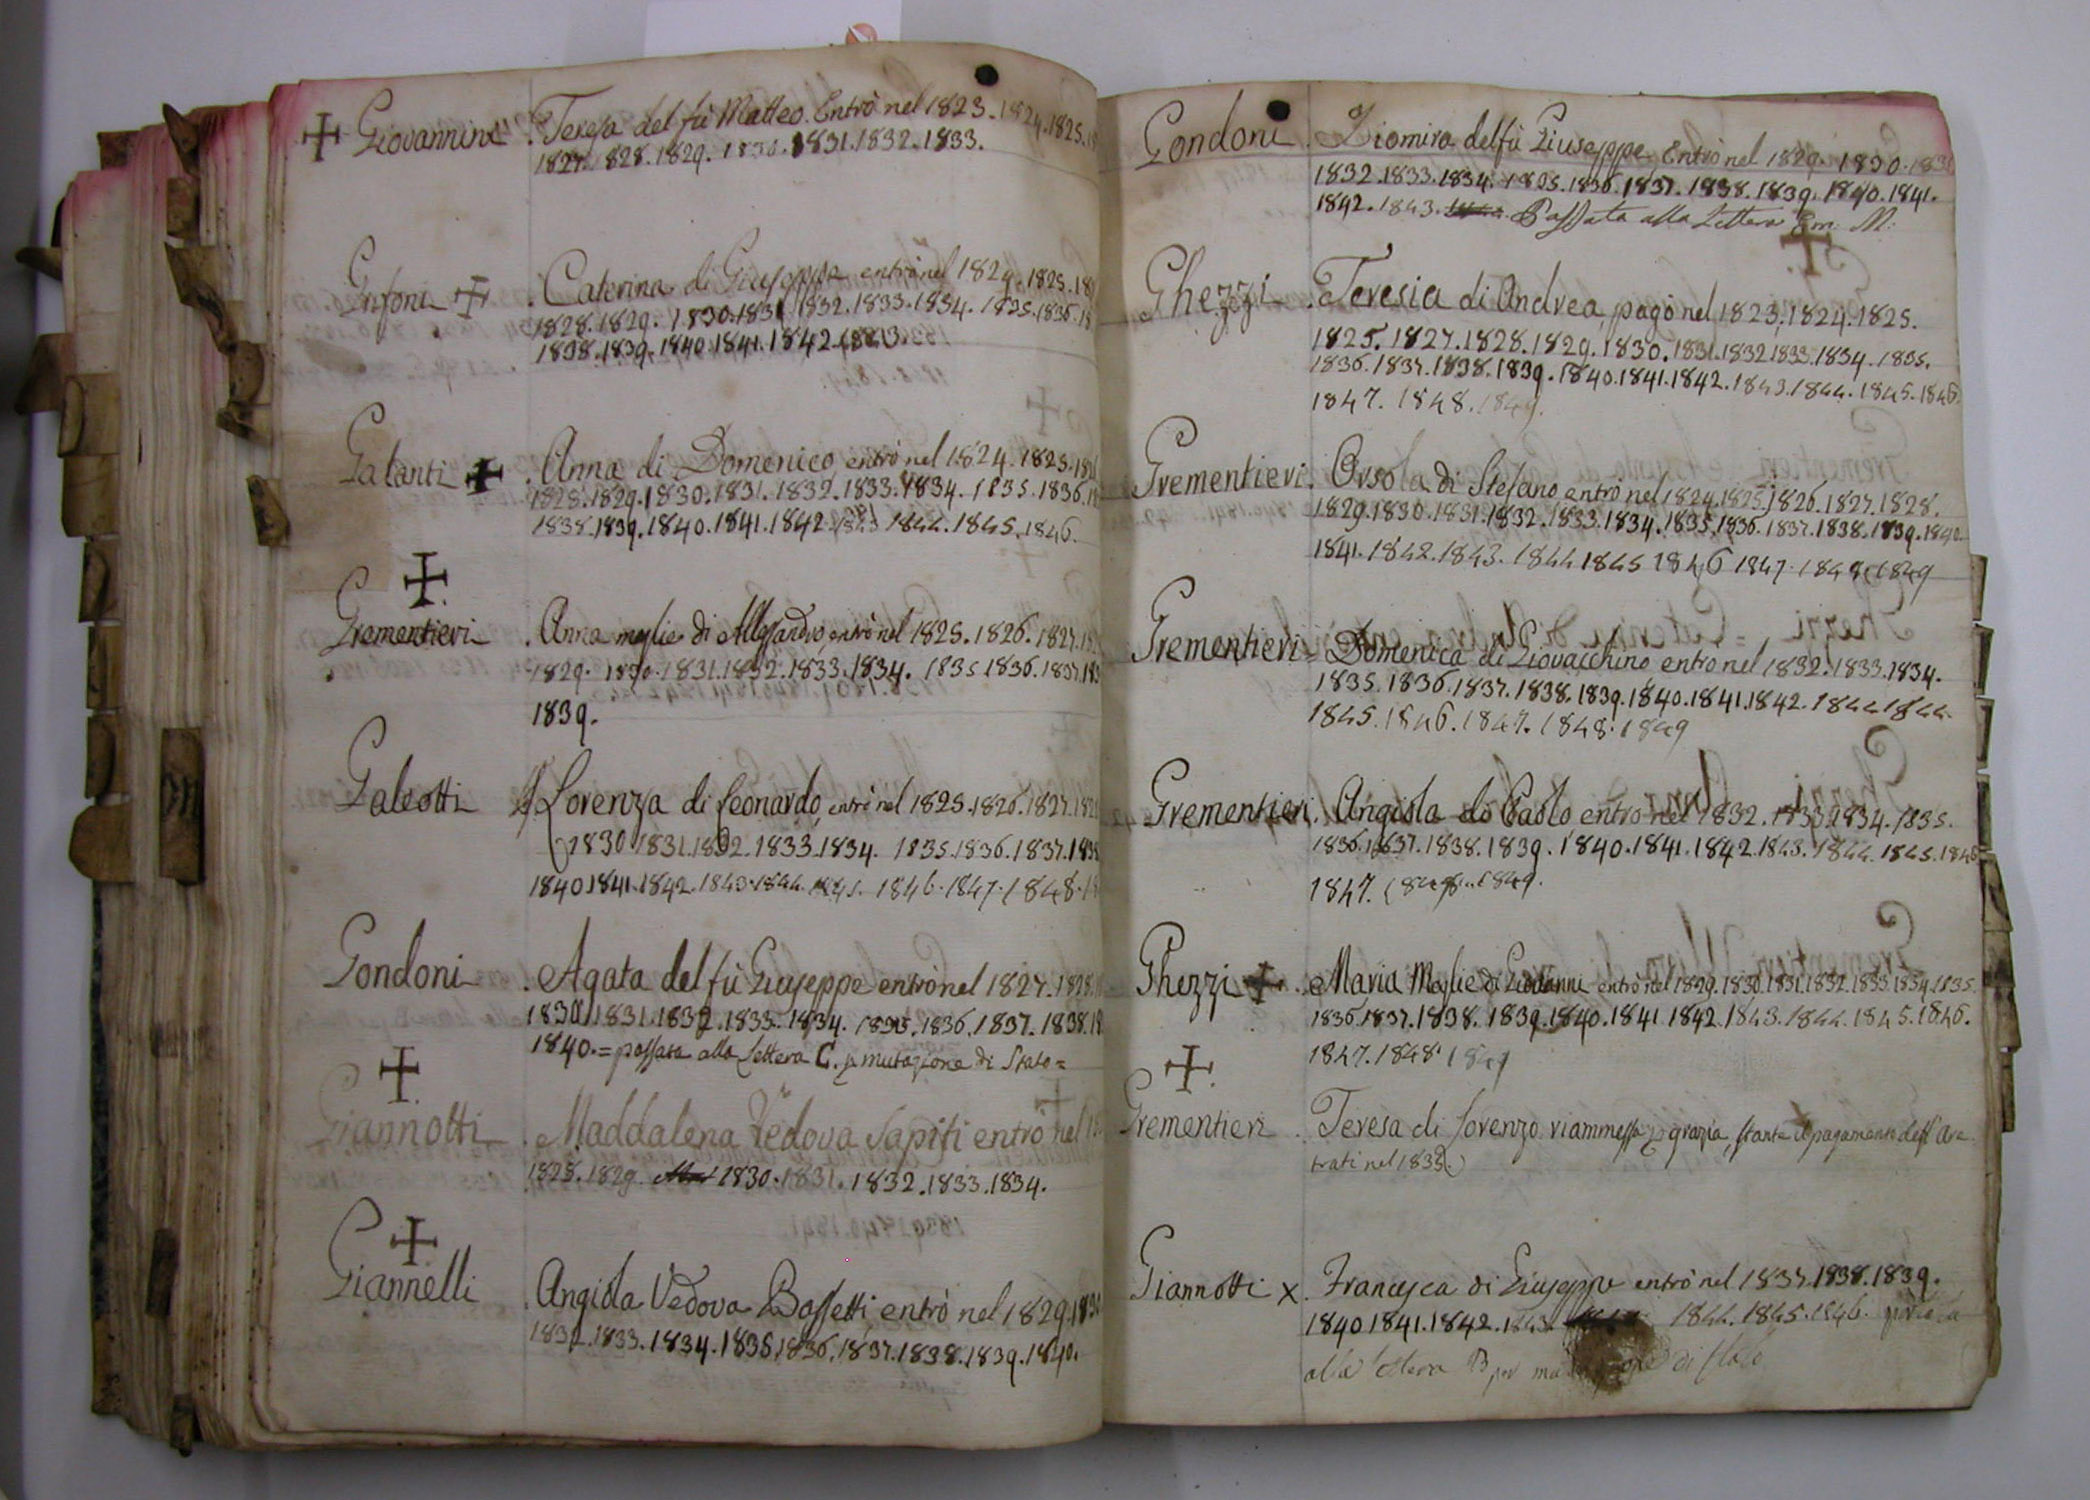 Giovannini . Teresa del fù Matteo. Entrò nel 1823. 1824. 1825.
1827. 1828. 1829. 1830. 1831. 1832. 1833.
Grifoni . Caterina di Giuseppe entrò nel 1824. 1825.
1828. 1829. 1830. 1831. 1832. 1833. 1834. 1835. 1836.
1838. 1839. 1840. 1841. 1842. 1843.
Galanti . Anna di Domenico entrò nel 1824. 1825.
1828. 1829. 1830. 1831. 1832. 1833. 1834. 1835. 1836.
1838. 1839. 1840. 1841. 1842. 1843 1844. 1845. 1846.
Grementieri . Anna moglie di Allessandro, entrò nel 1825. 1826. 1827.
1829. 1830. 1831. 1832. 1833. 1834. 1835 1836. 1837.
1839.
Galeotti Lorenza di Leonardo, entrò nel 1825. 1826. 1827.
1830 1831. 1832. 1833. 1834. 1835. 1836. 1837. 1838
1840 1841. 1842. 1843. 1844. 1845. 1846. 1847. 1848.
Gondoni . Agata del fù Giuseppe entrò nel 1827. 1828.
1830. 1831. 1832. 1833. 1834. 1835. 1836. 1837. 1838.
1840. = passata alla Lettera C. p mutazione di Stato =
Giannotti . Maddalena Vedova Sapiti entrò nel
1828. 1829. 1830. 1831. 1832. 1833. 1834.
Giannelli . Angiola Vedova Bassetti entrò nel 1829.
1832. 1833. 1834. 1835. 1836. 1837. 1838. 1839. 1840.
Gondoni . Ziomira del fù Giuseppe Entrò nel 1829. 1830. 1831
1832. 1833. 1834. 1835. 1836. 1837. 1838. 1839. 1840. 1841.
1842. 1843. Passata alla Lettera M.
Ghezzi . Teresia di Andrea, pagò nel 1823. 1824. 1825.
1825. 1827. 1828. 1829. 1830. 1831. 1832 1833. 1834. 1835.
1836. 1837. 1838. 1839. 1840. 1841. 1842. 1843. 1844. 1845. 1846.
1847. 1848. 1849.
Grementieri . Orsola di Stefano entrò nel 1824. 1825. 1826. 1827. 1828.
1829. 1830. 1831. 1832. 1833. 1834. 1835. 1836. 1837. 1838. 1839. 1840.
1841. 1842. 1843. 1844 1845 1846 1847. 1848. 1849
Grementieri = Domenica di Giovacchino entrò nel 1832. 1833. 1834.
1835. 1836. 1837. 1838. 1839. 1840. 1841. 1842. 1844 1844.
1845. 1846. 1847. 1848. 1849
Grementieri . Angiola di Paolo entrò nel 1832. 1833. 1834. 1835.
1836. 1837. 1838. 1839. 1840. 1841. 1842. 1843. 1844. 1845. 1846
1847. 1848. 1849.
Ghezzi . Maria Moglie di Giovanni entrò nel 1829. 1830. 1831. 1832. 1833. 1834. 1835.
1836. 1837. 1838. 1839. 1840. 1841 1842. 1843. 1844. 1845. 1846.
1847. 1848. 1849
Grementieri . Teresa di Lorenzo riammessa p grazia, stante il pagamento degl'Are
trati nel 1835.
Giannotti x . Francesca di Giuseppe entrò nel 1837. 1838. 1839.
1840 1841. 1842. 1843. 1844. 1845. 1846.
alla lettera B per di stato
M